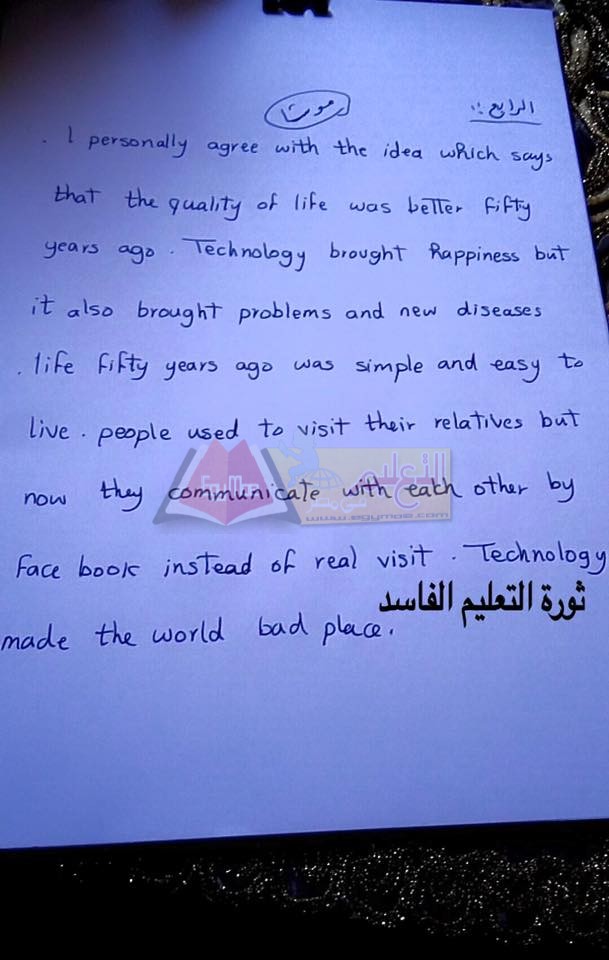 الرابع :
. I personally agree with the idea which says
that the quality of life was better fifty
years ago. Technology brought happiness but
it also brought problems and new diseases
. life fifty years ago was simple and easy to
live. people used to visit their relatives but
now they communicate with each other by
التعليم
www.egymoe.com
Face book instead of real visit. Technology
ثورة التعليم الفاسد
made the world bad place.